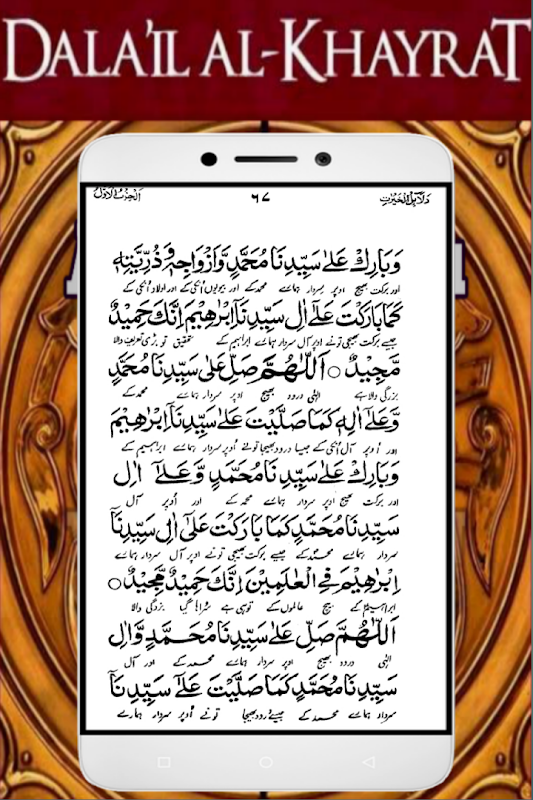 DALA'IL AL-KHAYRAT
دلائل الخیرات ٦٧ الحزب الاول
وَبَارِكْ عَلٰى سَيِّدِنَا مُحَمَّدٍ وَّاَزْوَاجِهٖ وَذُرِّيَّتِهٖ
اور برکت بھیج اوپر سردار ہمارے محمد کے اور بیویوں اُنکی کے اور اولاد اُنکی کے
كَمَا بَارَكْتَ عَلٰٓى اٰلِ سَيِّدِنَآ اِبْرٰهِيْمَ اِنَّكَ حَمِيْدٌ
جیسے برکت بھیجی تونے اوپر آل سردار ہمارے ابراہیم کے تحقیق تو بڑی تعریف والا
مَّجِيْدٌ ○ اَللّٰهُمَّ صَلِّ عَلٰى سَيِّدِنَا مُحَمَّدٍ
بزرگی والا ہے الٰہی درود بھیج اوپر سردار ہمارے محمد کے
وَّعَلٰٓى اٰلِهٖ كَمَا صَلَّيْتَ عَلٰى سَيِّدِنَآ اِبْرٰهِيْمَ
اور اُوپر آل اُنکی کے جیسا درود بھیجا تونے اُوپر سردار ہمارے ابراہیم کے
وَبَارِكْ عَلٰى سَيِّدِنَا مُحَمَّدٍ وَّعَلٰٓى اٰلِ
اور برکت بھیج اوپر سردار ہمارے محمد کے اور اُوپر آل
سَيِّدِنَا مُحَمَّدٍ كَمَا بَارَكْتَ عَلٰٓى اٰلِ سَيِّدِنَآ
سردار ہمارے محمد کے جیسے برکت بھیجی تونے اُوپر آل سردار ہمارے
اِبْرٰهِيْمَ فِي الْعٰلَمِيْنَ اِنَّكَ حَمِيْدٌ مَّجِيْدٌ ○
ابراہیم کے بیچ عالموں کے توہی ہے سراہا گیا بزرگی والا
اَللّٰهُمَّ صَلِّ عَلٰى سَيِّدِنَا مُحَمَّدٍ وَّاٰلِ
الٰہی درود بھیج اوپر سردار ہمارے محمد کے اور آل
سَيِّدِنَا مُحَمَّدٍ كَمَا صَلَّيْتَ عَلٰى سَيِّدِنَآ
سردار ہمارے محمد کے جیسے درود بھیجا تونے اُوپر سردار ہمارے